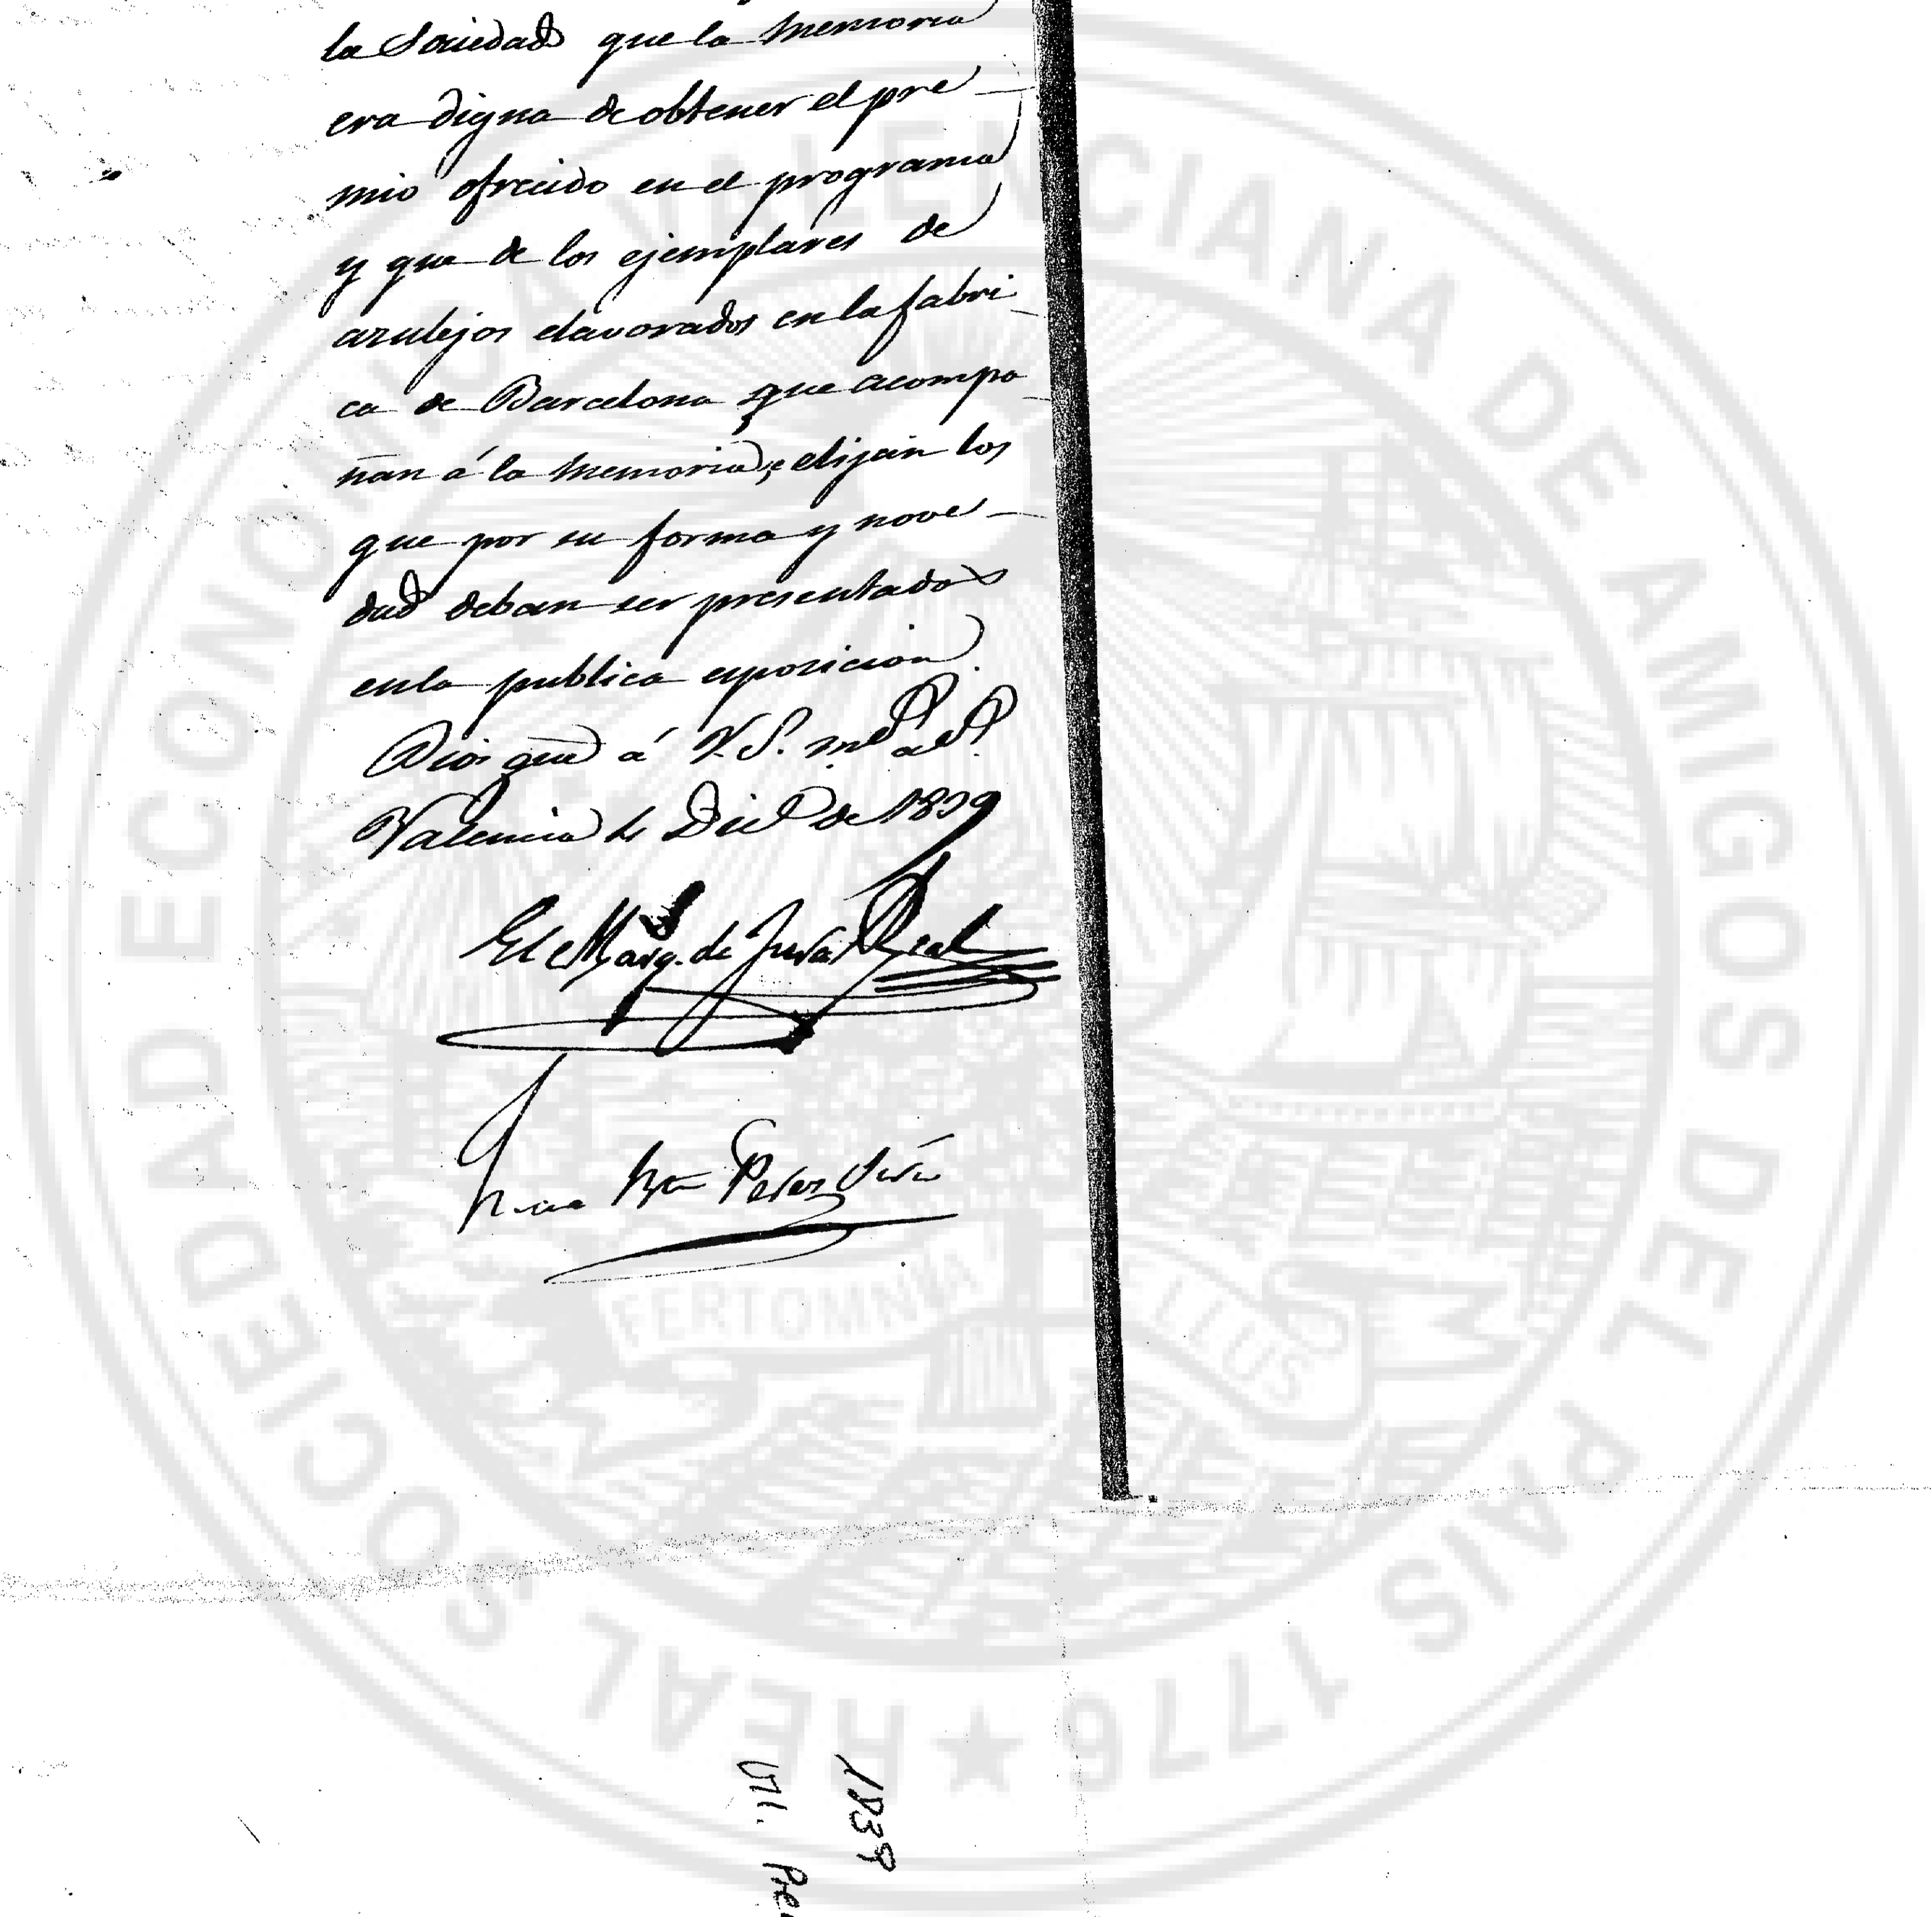 la Sociedad que la Memoria
era digna de obtener el pre
mio ofrecido en el programa
y que de los ejemplares de
azulejos elavorados en la fabri
ca de Barcelona que acompa
ñan á la Memoria, se elijan los
que por su forma y nove
dad deban ser presentados
en la publica esposicion.
Dios gue á V.S. ms as.
Valencia 4 Dice de 1839
El Marq. de Jura Real
Perez
1839
VII.
REAL SOCIEDAD ECONOMICA VALENCIANA DE AMIGOS DEL PAIS 1776
FERT OMNIA